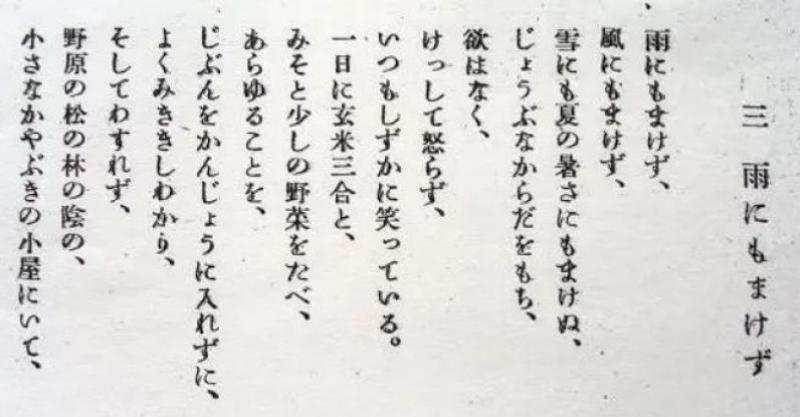 三 雨にもまけず
雨にもまけず、
風にもまけず、
雪にも夏の暑さにもまけぬ、
じょうぶなからだをもち、
欲はなく、
けっして怒らず、
いつもしずかに笑っている。
一日に玄米三合と、
みそと少しの野菜をたべ、
あらゆることを、
じぶんをかんじょうに入れずに、
よくみききしわかり、
そしてわすれず、
野原の松の林の陰の、
小さなかやぶきの小屋にいて、